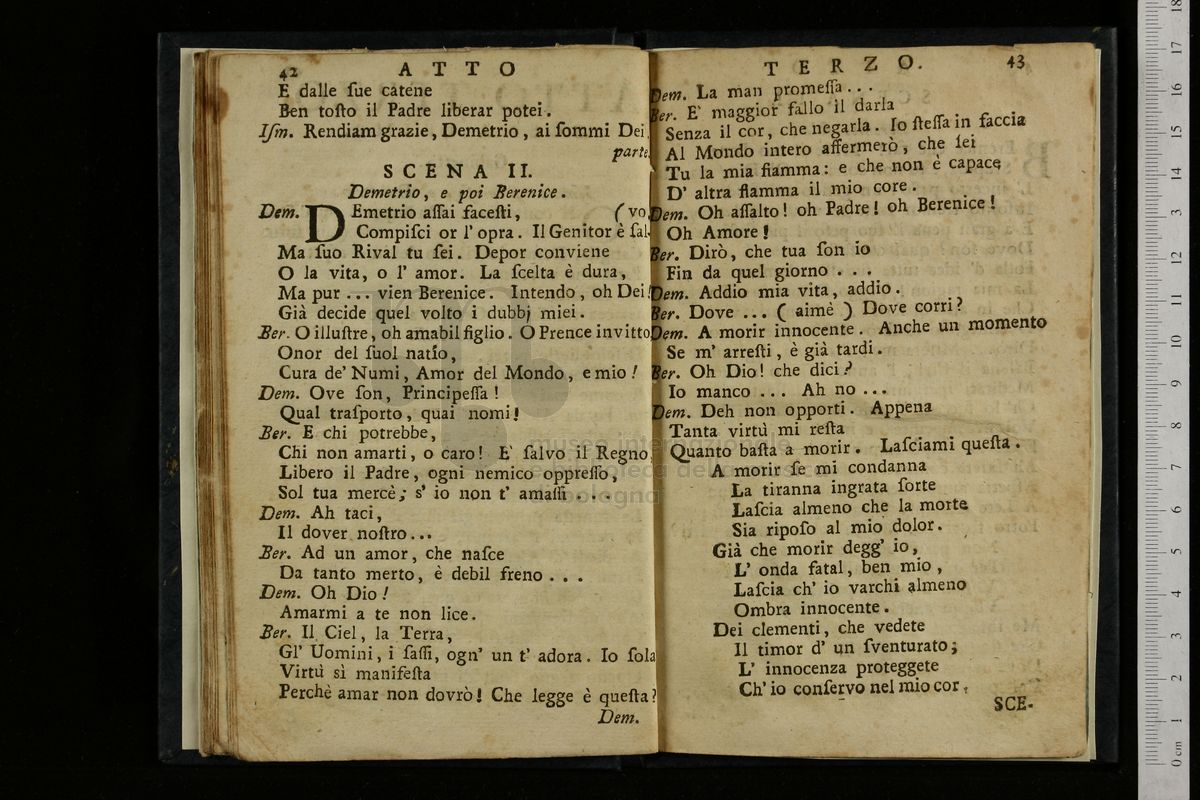 42 ATTO
E dalle ſue catene
Ben toſto il Padre liberar potei.
Iſm. Rendiam grazie, Demetrio, ai ſommi Dei.
parte.
SCENA II.
Demetrio, e poi Berenice.
Dem. DEmetrio aſſai faceſti, (vo.
Compiſci or l' opra. Il Genitor è ſal-
Ma ſuo Rival tu ſei. Depor conviene
O la vita, o l' amor. La ſcelta è dura,
Ma pur ... vien Berenice. Intendo, oh Dei!
Già decide quel volto i dubbj miei.
Ber. O illuſtre, oh amabil figlio. O Prence invitto
Onor del ſuol natío,
Cura de' Numi, Amor del Mondo, e mio!
Dem. Ove ſon, Principeſſa!
Qual traſporto, quai nomi!
Ber. E chi potrebbe,
Chi non amarti, o caro! E' ſalvo il Regno,
Libero il Padre, ogni nemico oppreſſo,
Sol tua mercè; s' io non t' amaſſi ...
Dem. Ah taci,
Il dover noſtro...
Ber. Ad un amor, che naſce
Da tanto merto, è debil freno ...
Dem. Oh Dio!
Amarmi a te non lice.
Ber. Il Ciel, la Terra,
Gl' Uomini, i ſaſſi, ogn' un t' adora. Io ſola
Virtù sì manifeſta
Perchè amar non dovrò! Che legge è queſta?
Dem.
TERZO. 43
Dem. La man promeſſa ...
Ber. E' maggior fallo il darla
Senza il cor, che negarla. Io ſteſſa in faccia
Al Mondo intero affermerò, che ſei
Tu la mia fiamma: e che non è capace
D' altra fiamma il mio core.
Dem. Oh aſſalto! oh Padre! oh Berenice!
Oh Amore!
Ber. Dirò, che tua ſon io
Fin da quel giorno ...
Dem. Addio mia vita, addio.
Ber. Dove ... ( aimè ) Dove corri?
Dem. A morir innocente. Anche un momento
Se m' arreſti, è già tardi.
Ber. Oh Dio! che dici?
Io manco ... Ah no ...
Dem. Deh non opporti. Appena
Tanta virtù mi reſta
Quanto baſta a morir. Laſciami queſta.
A morir ſe mi condanna
La tiranna ingrata ſorte
Laſcia almeno che la morte
Sia ripoſo al mio dolor.
Già che morir degg' io,
L' onda fatal, ben mio,
Laſcia ch' io varchi almeno
Ombra innocente.
Dei clementi, che vedete
Il timor d' un ſventurato;
L' innocenza proteggete
Ch' io conſervo nel mio cor.
SCE-
museo internazionale
bologna
0 cm 1 2 3 4 5 6 7 8 9 10 11 12 13 14 15 16 17 18